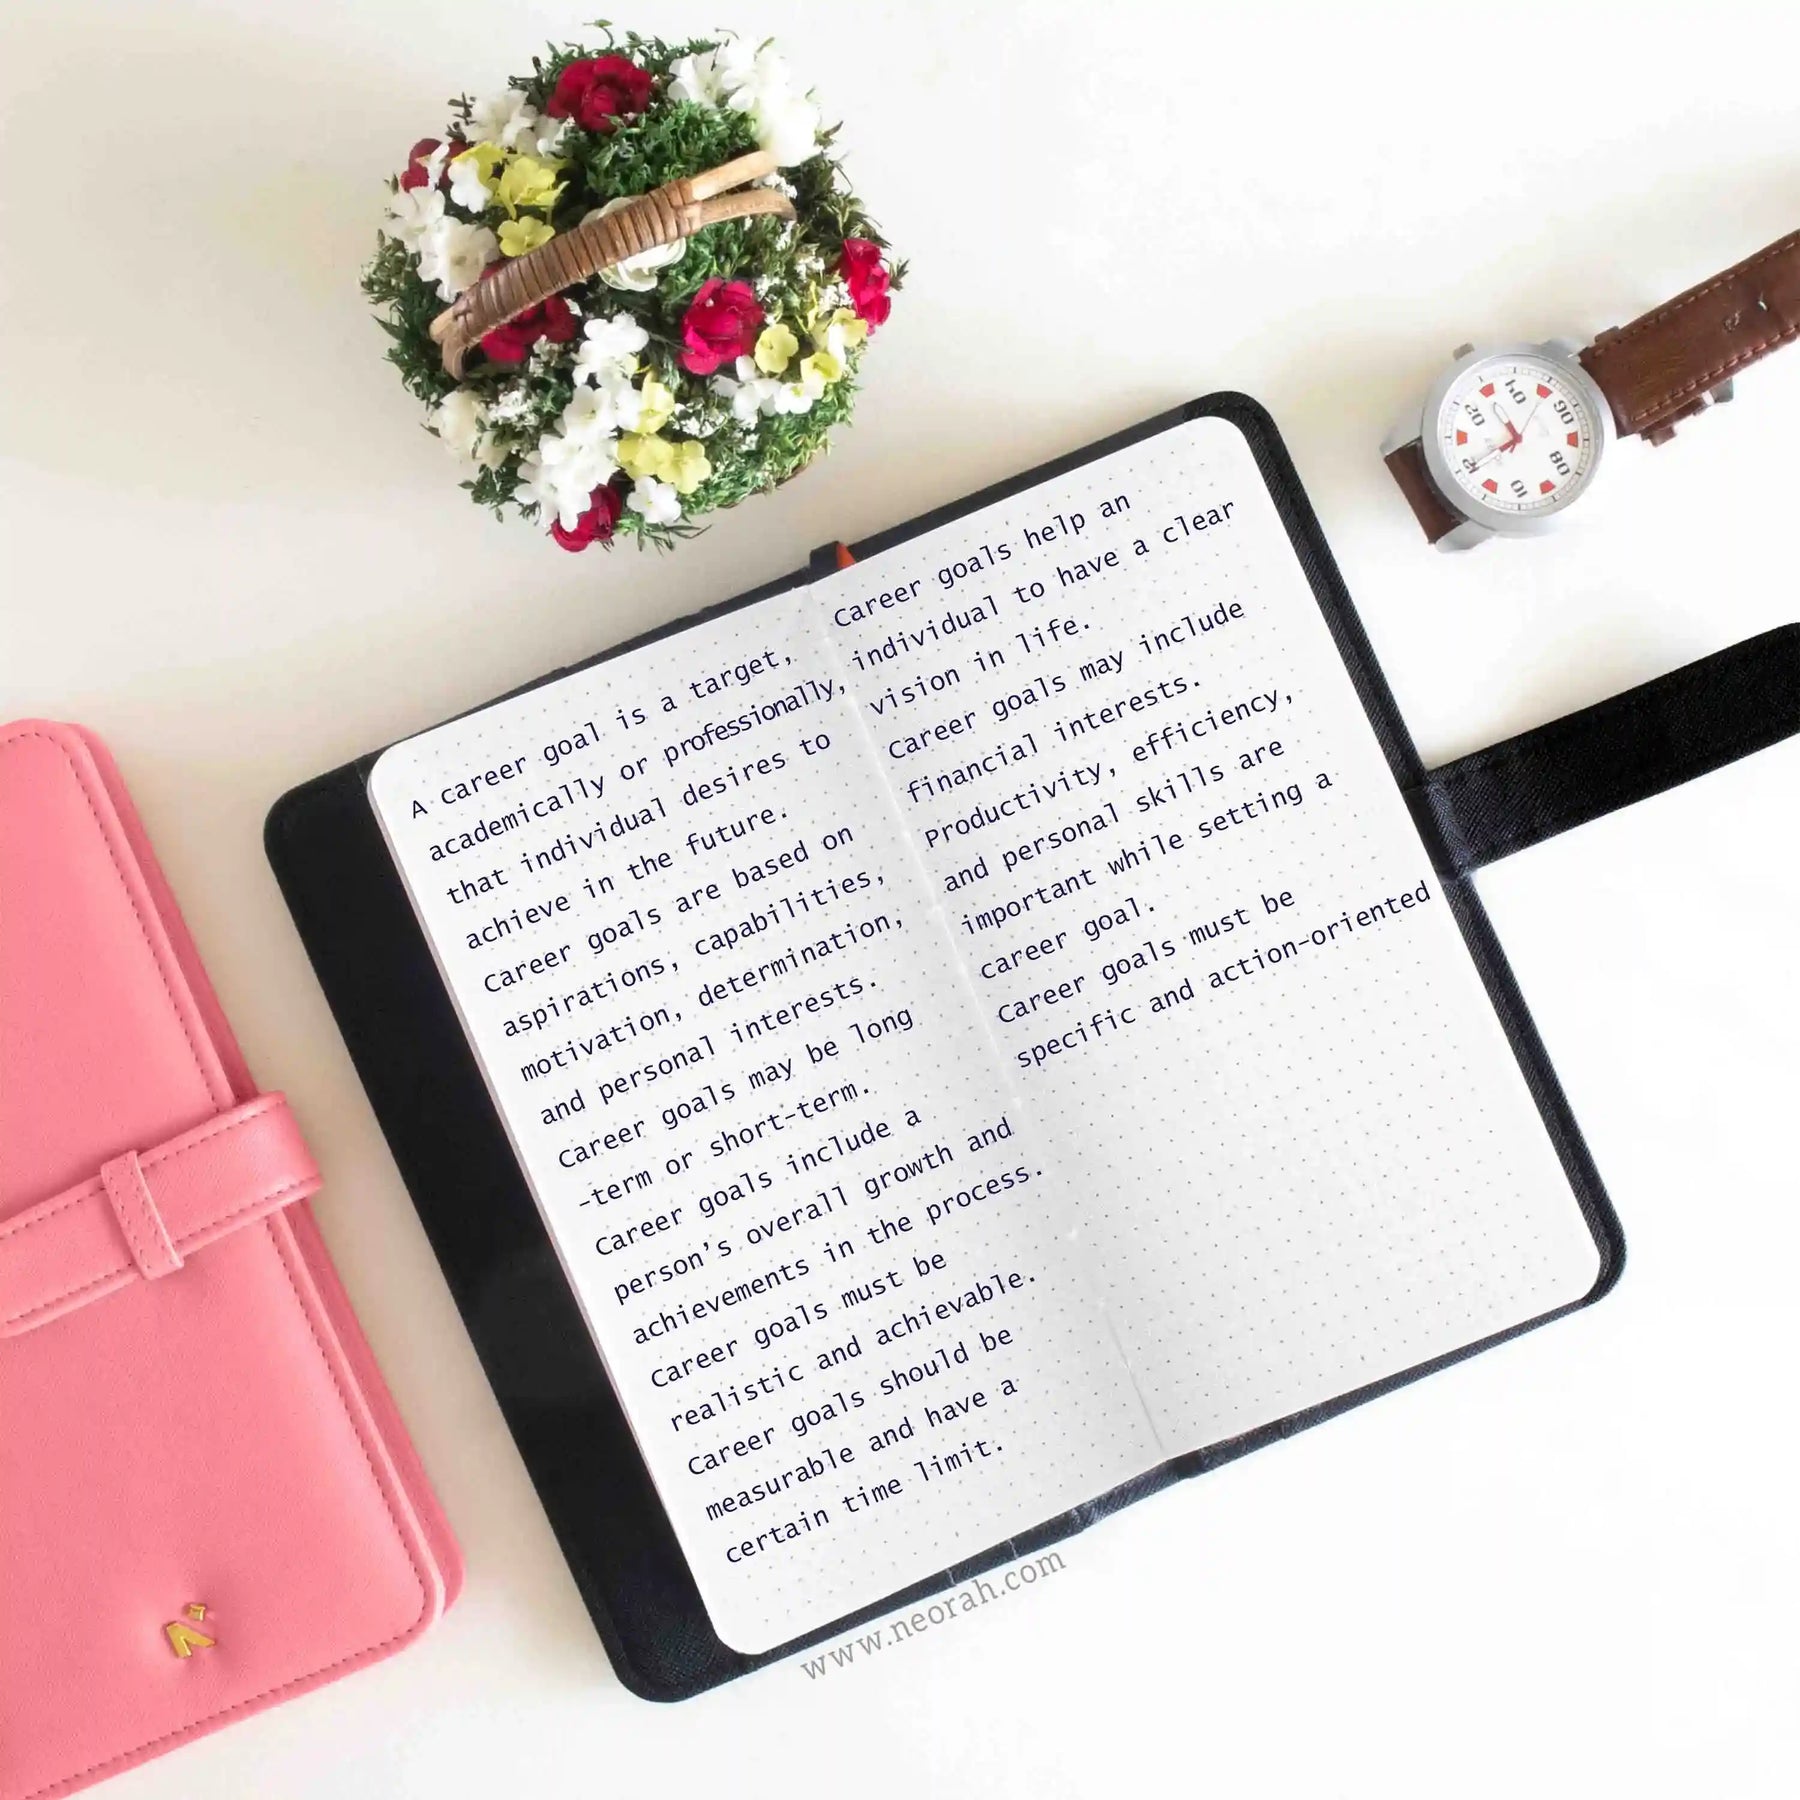 A career goal is a target,
academically or professionally,
that individual desires to
achieve in the future.
Career goals are based on
aspirations, capabilities,
motivation, determination,
and personal interests.
Career goals may be long
-term or short-term.
Career goals include a
person's overall growth and
achievements in the process.
Career goals must be
realistic and achievable.
Career goals should be
measurable and have a
certain time limit.
Career goals help an
individual to have a clear
vision in life.
Career goals may include
financial interests.
Productivity, efficiency,
and personal skills are
important while setting a
career goal.
Career goals must be
specific and action-oriented
www.neorah.com
12
02
04
06
08
10